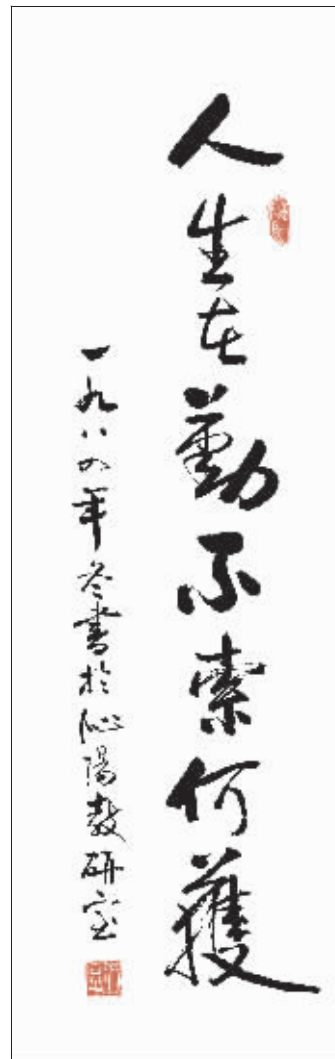 人生在勤不索何獲
一九八四年冬書於沁陽教研室